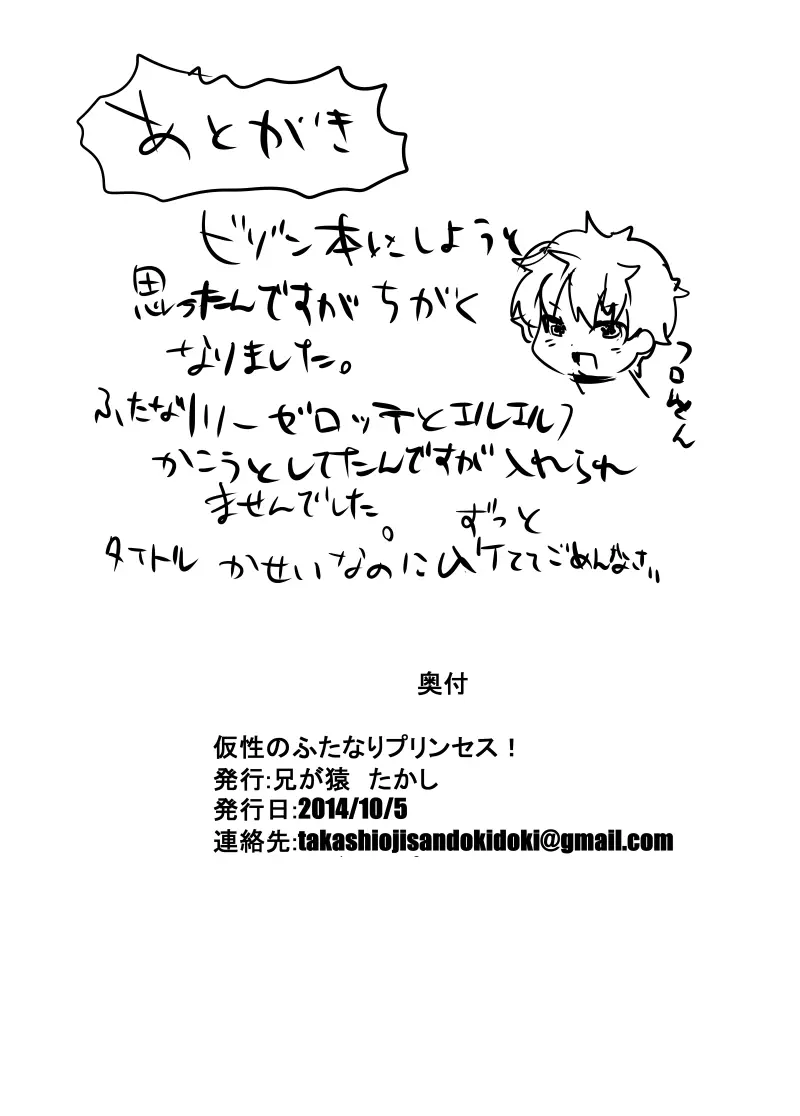 あとがき
ビゾン本にしようと
思ったんですが ちがく
なりました。
ふたなりリーゼロッテとエルエルフ
かこうとしてたんですが 入れられ
ませんでした。 ずっと
タイトル かせいなのに
ごめんなさい
奥付
仮性のふたなりプリンセス！
発行:兄が猿 たかし
発行日:2014/10/5
連絡先:takashiojisandokidoki@gmail.com